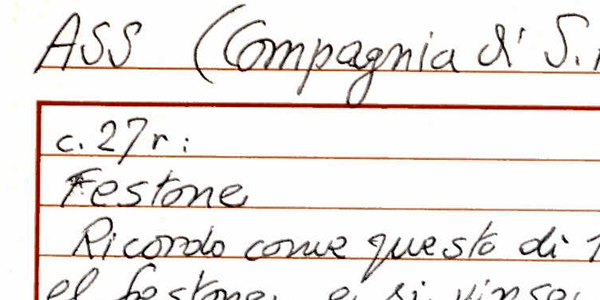 ASS (Compagnia di S.
c. 27r:
Festone
Ricordo come questo dì
el festone, e si vinse